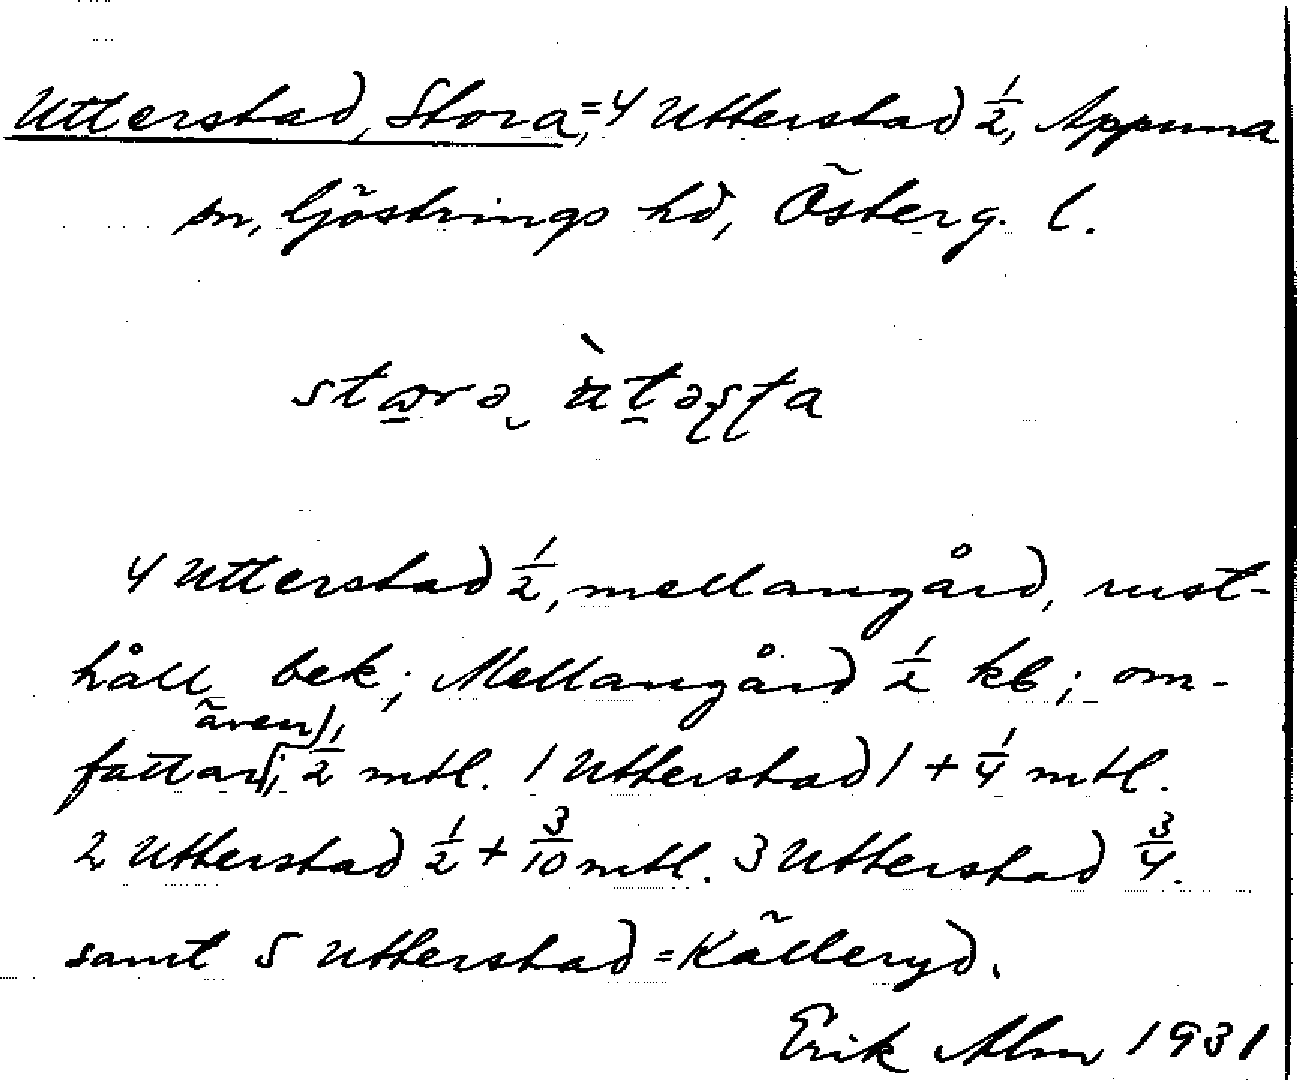 Utterstad, Stora, = 4 Utterstad 1/2, Appuna
sn, Göstrings hd, Österg. l.
4 Utterstad 1/2, mellangård, rust-
håll bek; Mellangård 1/2 kb; om-
även
fattar 1/2 mtl. 1 Utterstad 1 + 1/4 mtl.
2 Utterstad 1/2 + 3/10 mtl. 3 Utterstad 3/4.
samt 5 Utterstad = Källeryd.
Erik Alm 1931